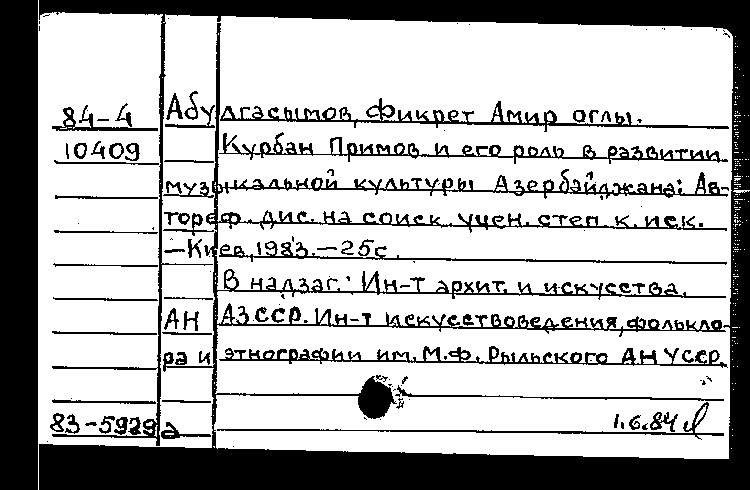 84-4 Абулгасымов, Фикрет Амир оглы.
10409 Курбан Примов и его роль в развитии
музыкальной культуры Азербайджана: Ав-
тореф. дис. на соиск. учен. степ. к. иск.
—Киев, 1983.—25с.
В надзаг.: Ин-т архит. и искусства.
АН АЗССР. Ин-т искусствоведения, фолькло-
ра и этнографии им. М.Ф. Рыльского АН УССР.
83-5929а 1.6.84